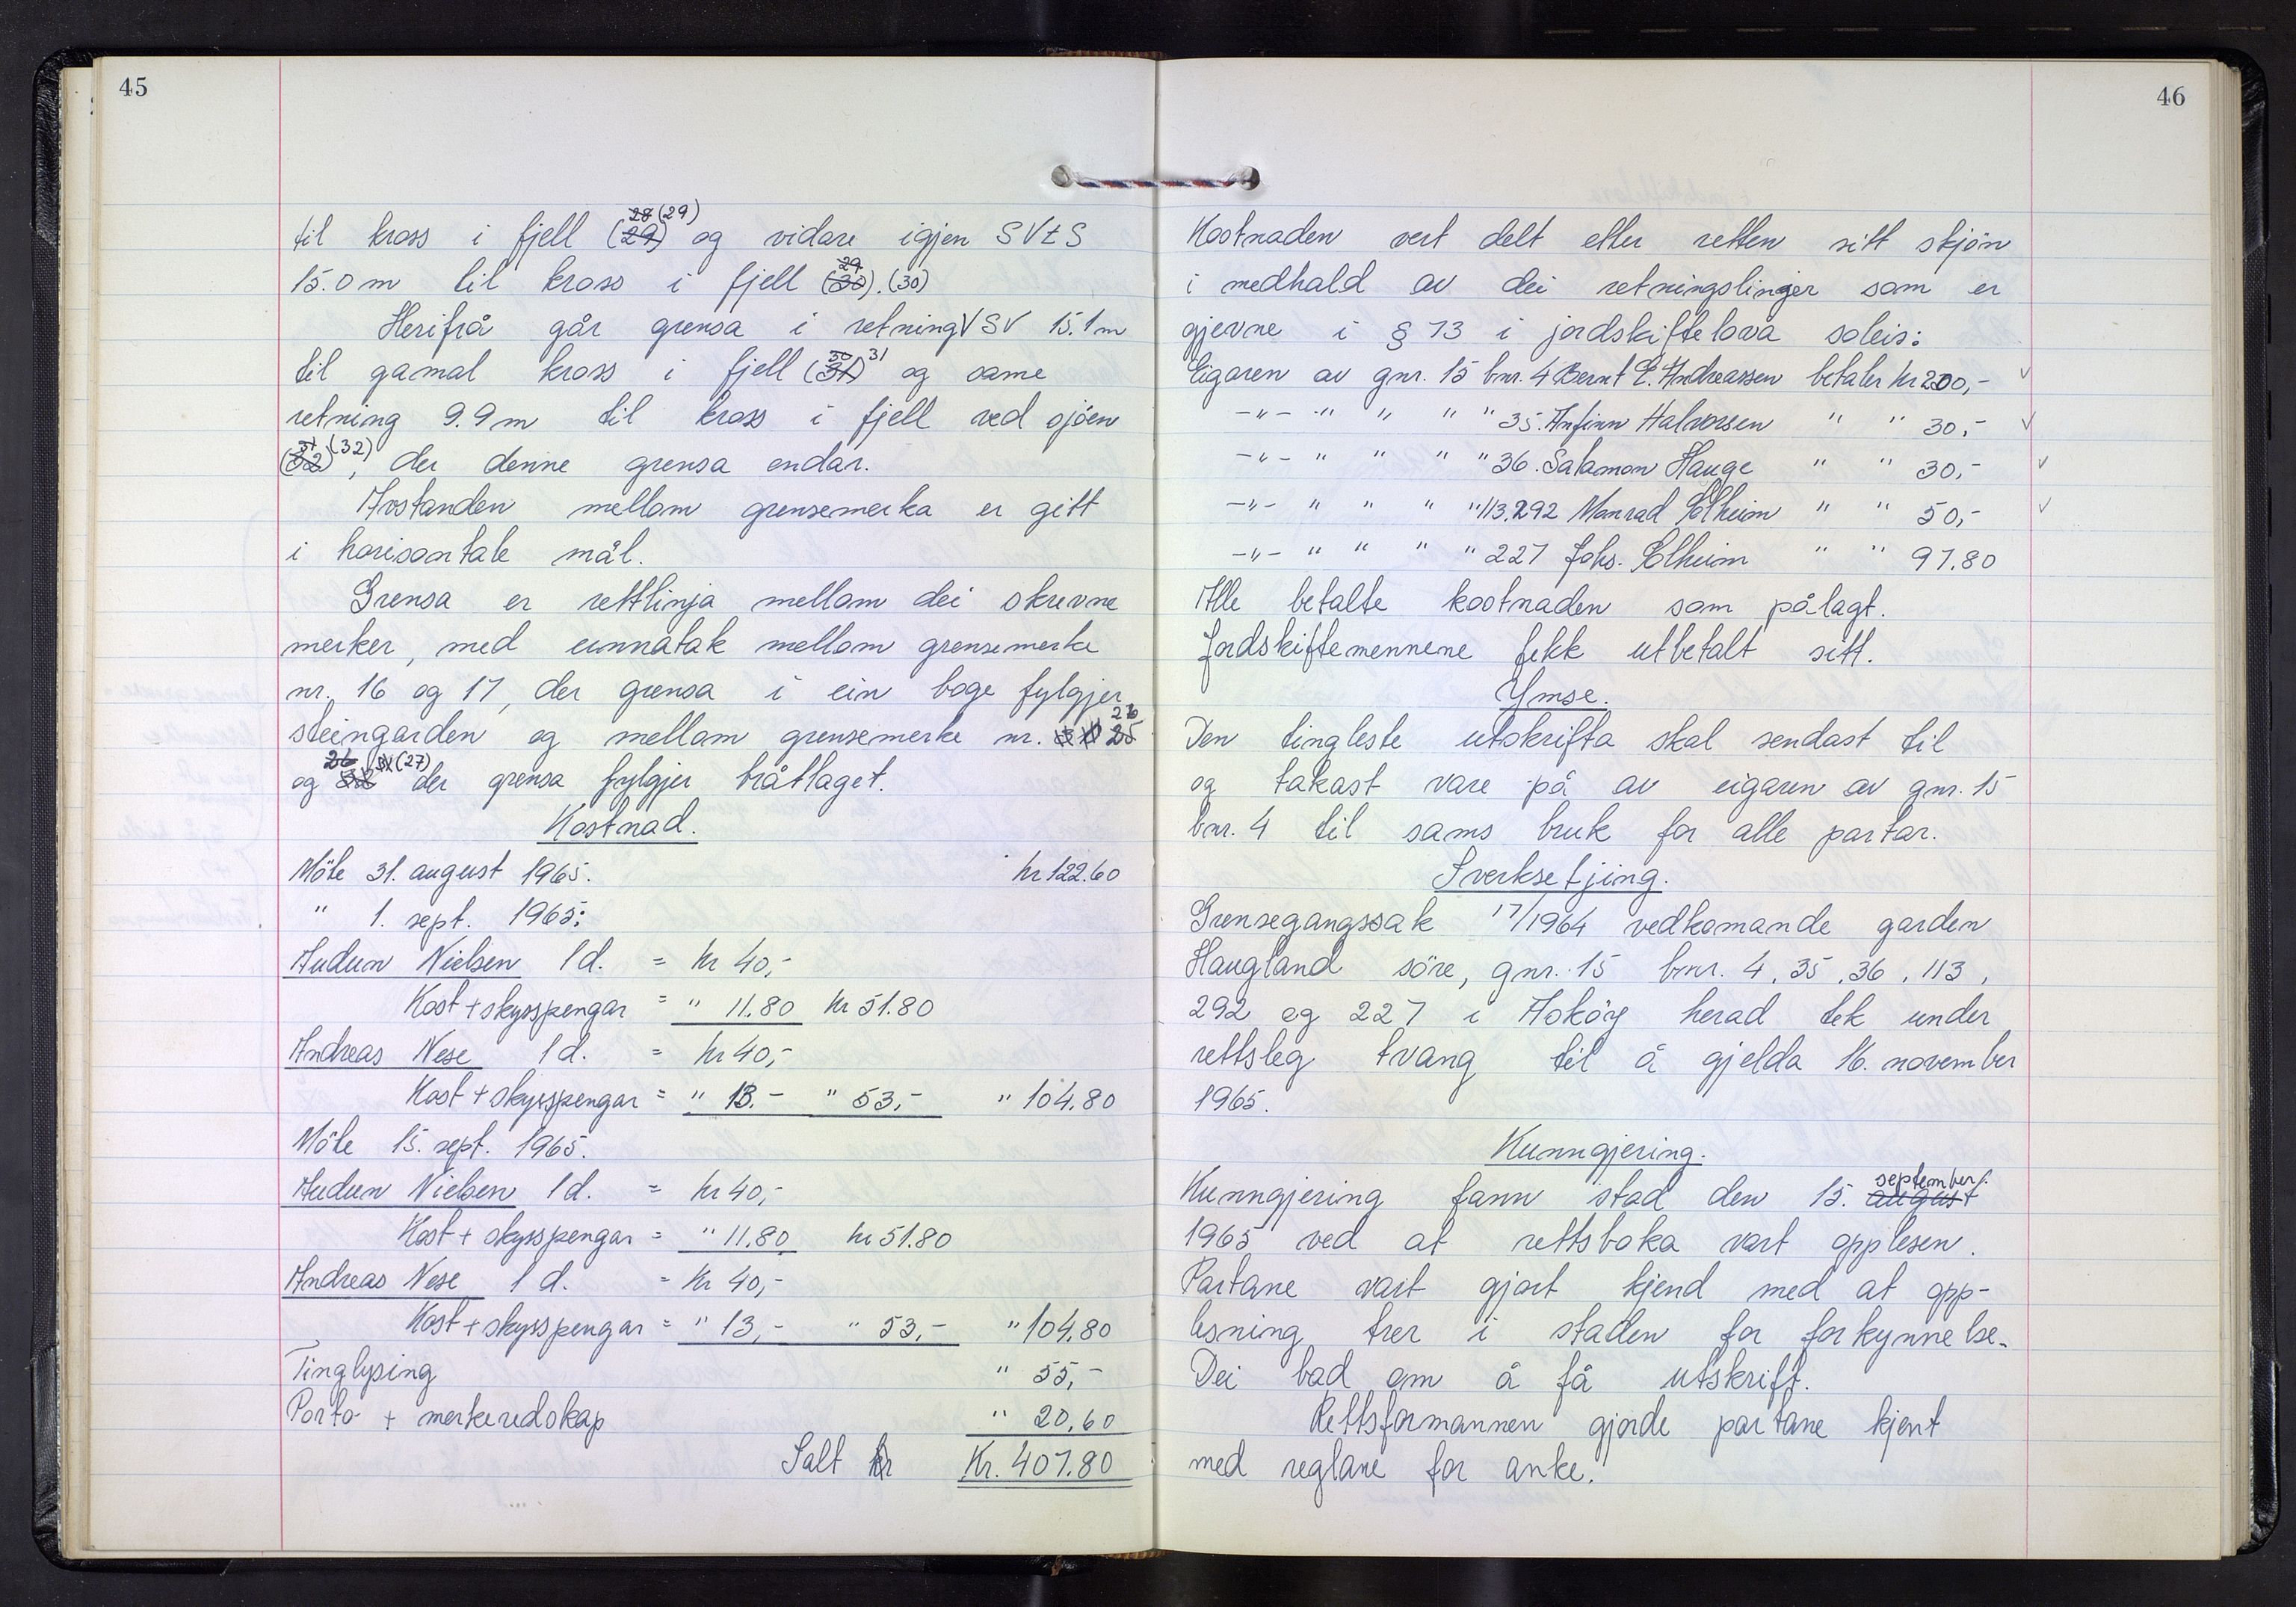 45
til kross i fjell (29) 28 (29) og vidare igjen SVtS
15.0 m til kross i fjell (30) 29. (30)
Herifrå går grensa i retning VSV 15.1 m
til gamal kross i fjell (31) 30 31 og same
retning 9.9 m til kross i fjell ved sjöen
(32) 31 (32), der denne grensa endar.
Avstanden mellom grensemerka er gitt
i horisontale mål.
Grensa er rettlinja mellom dei skrevne
merker, med unnatak mellom grensemerke
nr. 16 og 17, der grensa i ein boge fylgjer
steingarden og mellom grensemerke nr. 25 26
og 26 (27) der grensa fylgjer båtlaget.
Kostnad.
Möte 31. august 1965. kr 122.60
" 1. sept. 1965:
Audun Nielsen 1 d. = kr 40,-
Kost + skysspengar = " 11.80 kr 51.80
Andreas Nese 1 d. = kr 40,-
Kost + skysspengar = " 13.- " 53,- " 104.80
Möte 15. sept. 1965.
Audun Nielsen 1 d. = kr 40,-
Kost + skysspengar = " 11.80 kr 51.80
Andreas Nese 1 d. = kr 40,-
Kost + skysspengar = " 13,- " 53,- " 104.80
Tinglysing " 55,-
Porto + merkeredskap " 20.60
Salt kr Kr. 407.80
46
Kostnaden vert delt etter retten sitt skjön
i medhald av dei retningslinjer som er
gjevne i § 73 i jordskiftelova soleis:
Eigaren av gnr. 15 bnr. 4 Bernt E. Andreassen betaler kr 200,- ✓
-"- " " " " 35. Anfinn Halvorsen " " 30,- ✓
-"- " " " " 36. Salamon Hauge " " 30,- ✓
-"- " " " " 113.292 Monrad Solheim " " 50,- ✓
-"- " " " " 227 Johs. Solheim " " 97.80
Alle betalte kostnaden som pålagt.
Jordskiftemennene fekk utbetalt sitt.
Ymse.
Den tingleste utskrifta skal sendast til
og takast vare på av eigaren av gnr. 15
bnr. 4 til sams bruk for alle partar.
Iverksetjing.
Grensegangssak 17/1964 vedkomande garden
Haugland söre, gnr. 15 bnr. 4, 35, 36, 113,
292 og 227 i Askøy herad tek under
rettsleg tvang til å gjelda 16. november
1965.
Kunngjering.
Kunngjering fann stad den 15. august september
1965 ved at rettsboka vart opplesen.
Partane vart gjort kjend med at opp-
lesning trer i staden for forkynnelse.
Dei bad om å få utskrift.
Rettsformannen gjorde partane kjent
med reglane for anke.